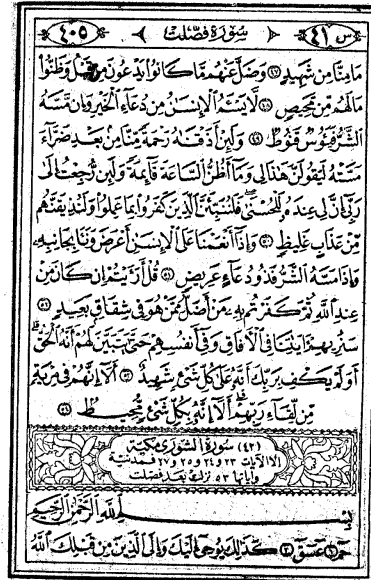 ٤٠٥ سورة فصلت س ٤١
مَا مِنَّا مِن شَهِيدٍ ٤٧ وَضَلَّ عَنْهُم مَّا كَانُوا يَدْعُونَ مِن قَبْلُ وَظَنُّوا
مَا لَهُم مِّن مَّحِيصٍ ٤٨ لَّا يَسْـَٔمُ الْإِنسَٰنُ مِن دُعَاءِ الْخَيْرِ وَإِن مَّسَّهُ
الشَّرُّ فَيَـُٔوسٌ قَنُوطٌ ٤٩ وَلَئِنْ أَذَقْنَٰهُ رَحْمَةً مِّنَّا مِن بَعْدِ ضَرَّاءَ
مَسَّتْهُ لَيَقُولَنَّ هَٰذَا لِي وَمَا أَظُنُّ السَّاعَةَ قَائِمَةً وَلَئِن رُّجِعْتُ إِلَىٰ
رَبِّي إِنَّ لِي عِندَهُ لَلْحُسْنَىٰ فَلَنُنَبِّئَنَّ الَّذِينَ كَفَرُوا بِمَا عَمِلُوا وَلَنُذِيقَنَّهُم
مِّنْ عَذَابٍ غَلِيظٍ ٥٠ وَإِذَا أَنْعَمْنَا عَلَى الْإِنسَٰنِ أَعْرَضَ وَنَـَٔا بِجَانِبِهِ
وَإِذَا مَسَّهُ الشَّرُّ فَذُو دُعَاءٍ عَرِيضٍ ٥١ قُلْ أَرَءَيْتُمْ إِن كَانَ مِنْ
عِندِ اللَّهِ ثُمَّ كَفَرْتُم بِهِ مَنْ أَضَلُّ مِمَّنْ هُوَ فِي شِقَاقٍ بَعِيدٍ ٥٢
سَنُرِيهِمْ ءَايَٰتِنَا فِي الْءَافَاقِ وَفِي أَنفُسِهِمْ حَتَّىٰ يَتَبَيَّنَ لَهُمْ أَنَّهُ الْحَقُّ
أَوَلَمْ يَكْفِ بِرَبِّكَ أَنَّهُ عَلَىٰ كُلِّ شَيْءٍ شَهِيدٌ ٥٣ أَلَا إِنَّهُمْ فِي مِرْيَةٍ
مِّن لِّقَاءِ رَبِّهِمْ أَلَا إِنَّهُ بِكُلِّ شَيْءٍ مُّحِيطٌ ٥٤
(٤٢) سورة الشورى مكية
إلا الآيات ٢٣ و٢٤ و٢٥ و٢٧ فمدنية
وآياتها ٥٣ نزلت بعد فصلت
بِسْمِ اللَّهِ الرَّحْمَٰنِ الرَّحِيمِ
حمٓ ١ عٓسٓقٓ ٢ كَذَٰلِكَ يُوحِي إِلَيْكَ وَإِلَى الَّذِينَ مِن قَبْلِكَ اللَّهُ